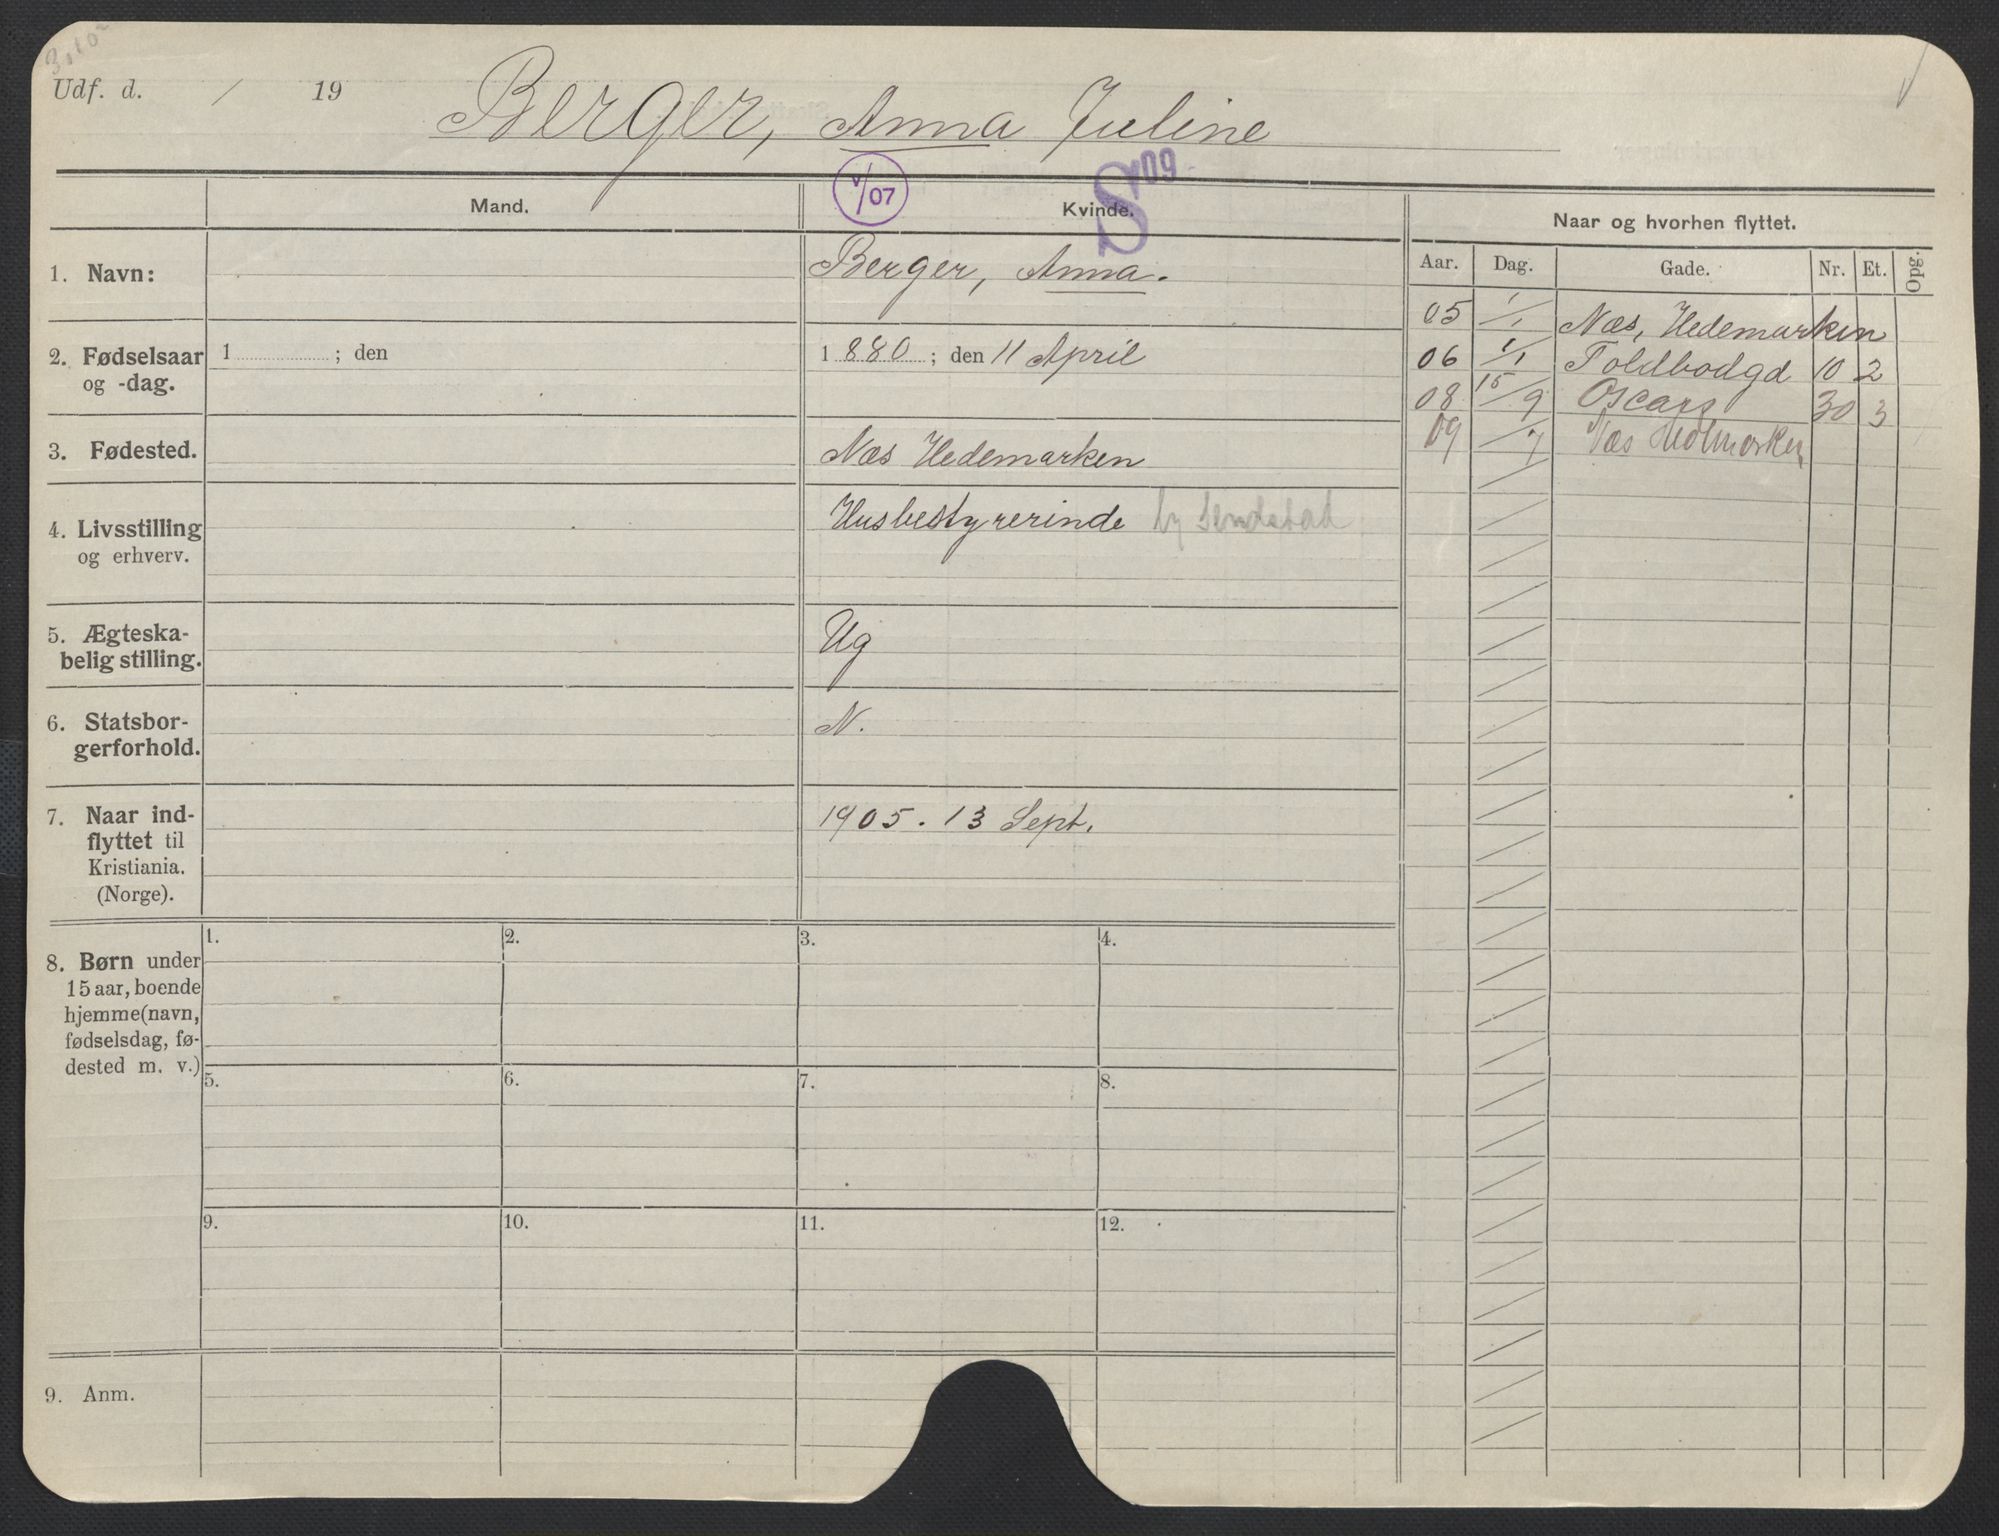 Udf. d. / 19
Berger, Anna Juline
V/07
S '09
Mand.
Kvinde.
Naar og hvorhen flyttet.
Aar. Dag. Gade. Nr. Et. Opg.
1. Navn:
Berger, Anna.
2. Fødselsaar
og -dag.
1 ; den
1 880 ; den 11 April
3. Fødested.
Næs Hedemarken
4. Livsstilling
og erhverv.
Husbestyrerinde
5. Ægteska-
belig stilling.
Ug
6. Statsbor-
gerforhold.
N.
7. Naar ind-
flyttet til
Kristiania.
(Norge).
1905. 13 Sept.
05 1/1 Næs, Hedemarken
06 1/1 Toldbodgd 10 2
08 15/9 Oscars 30 3
09 /7 Næs Hedmarken
8. Børn under
15 aar, boende
hjemme (navn,
fødselsdag, fø-
dested m. v.)
1. 2. 3. 4.
5. 6. 7. 8.
9. 10. 11. 12.
9. Anm.